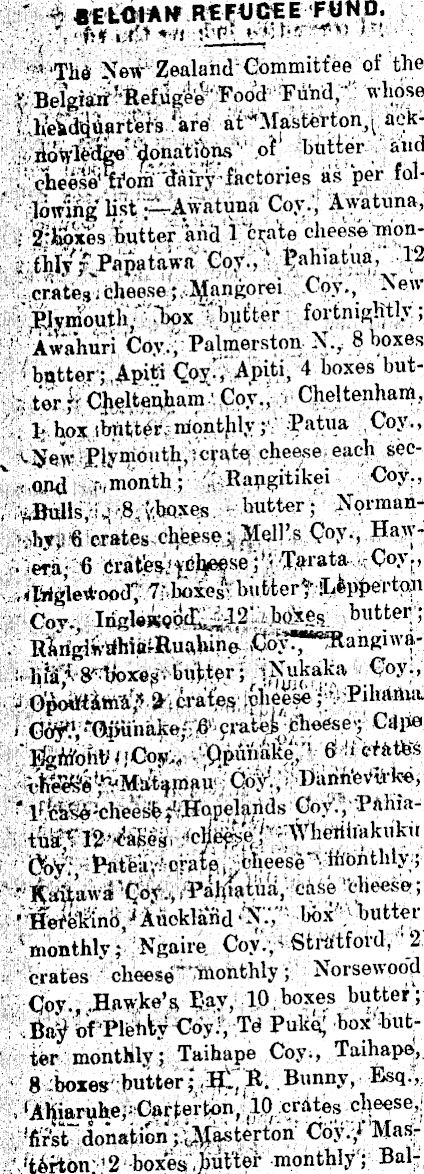 BELGIAN REFUGEE FUND.
The New Zealand Committee of the
Belgian Refugee Food Fund, whose
headquarters are at Masterton, ack-
nowledge donations of butter and
cheese from dairy factories as per fol-
lowing list:—Awatuna Coy., Awatuna,
2 boxes butter and 1 crate cheese mon-
thly; Papatawa Coy., Pahiatua, 12
crates cheese; Mangorei Coy., New
Plymouth, box butter fortnightly;
Awahuri Coy., Palmerston N., 8 boxes
butter; Apiti Coy., Apiti, 4 boxes but-
ter; Cheltenham Coy., Cheltenham,
1 box butter monthly; Patua Coy.,
New Plymouth, crate cheese each sec-
ond month; Rangitikei Coy.,
Bulls, 8 boxes butter; Norman-
by, 6 crates cheese; Mell's Coy., Haw-
era, 6 crates cheese; Tarata Coy.,
Inglewood, 7 boxes butter; Lepperton
Coy., Inglewood, 12 boxes butter;
Rangiwahia-Ruahine Coy., Rangiwa-
hia, 8 boxes butter; Nukaka Coy.,
Opoutama, 2 crates cheese; Pihama
Coy., Opunake, 6 crates cheese; Cape
Egmont Coy., Opunake, 6 crates
cheese; Matamau Coy., Dannevirke,
1 case cheese; Hopelands Coy., Pahia-
tua, 12 cases cheese; Whenuakuku
Coy., Patea, crate cheese monthly;
Kaitawa Coy., Pahiatua, case cheese;
Herekino, Auckland N., box butter
monthly; Ngaire Coy., Stratford, 2
crates cheese monthly; Norsewood
Coy., Hawke's Bay, 10 boxes butter;
Bay of Plenty Coy., Te Puke, box but-
ter monthly; Taihape Coy., Taihape,
8 boxes butter; H. R. Bunny, Esq.,
Ahiaruhe, Carterton, 10 crates cheese,
first donation; Masterton Coy., Mas-
terton, 2 boxes butter monthly; Bal-